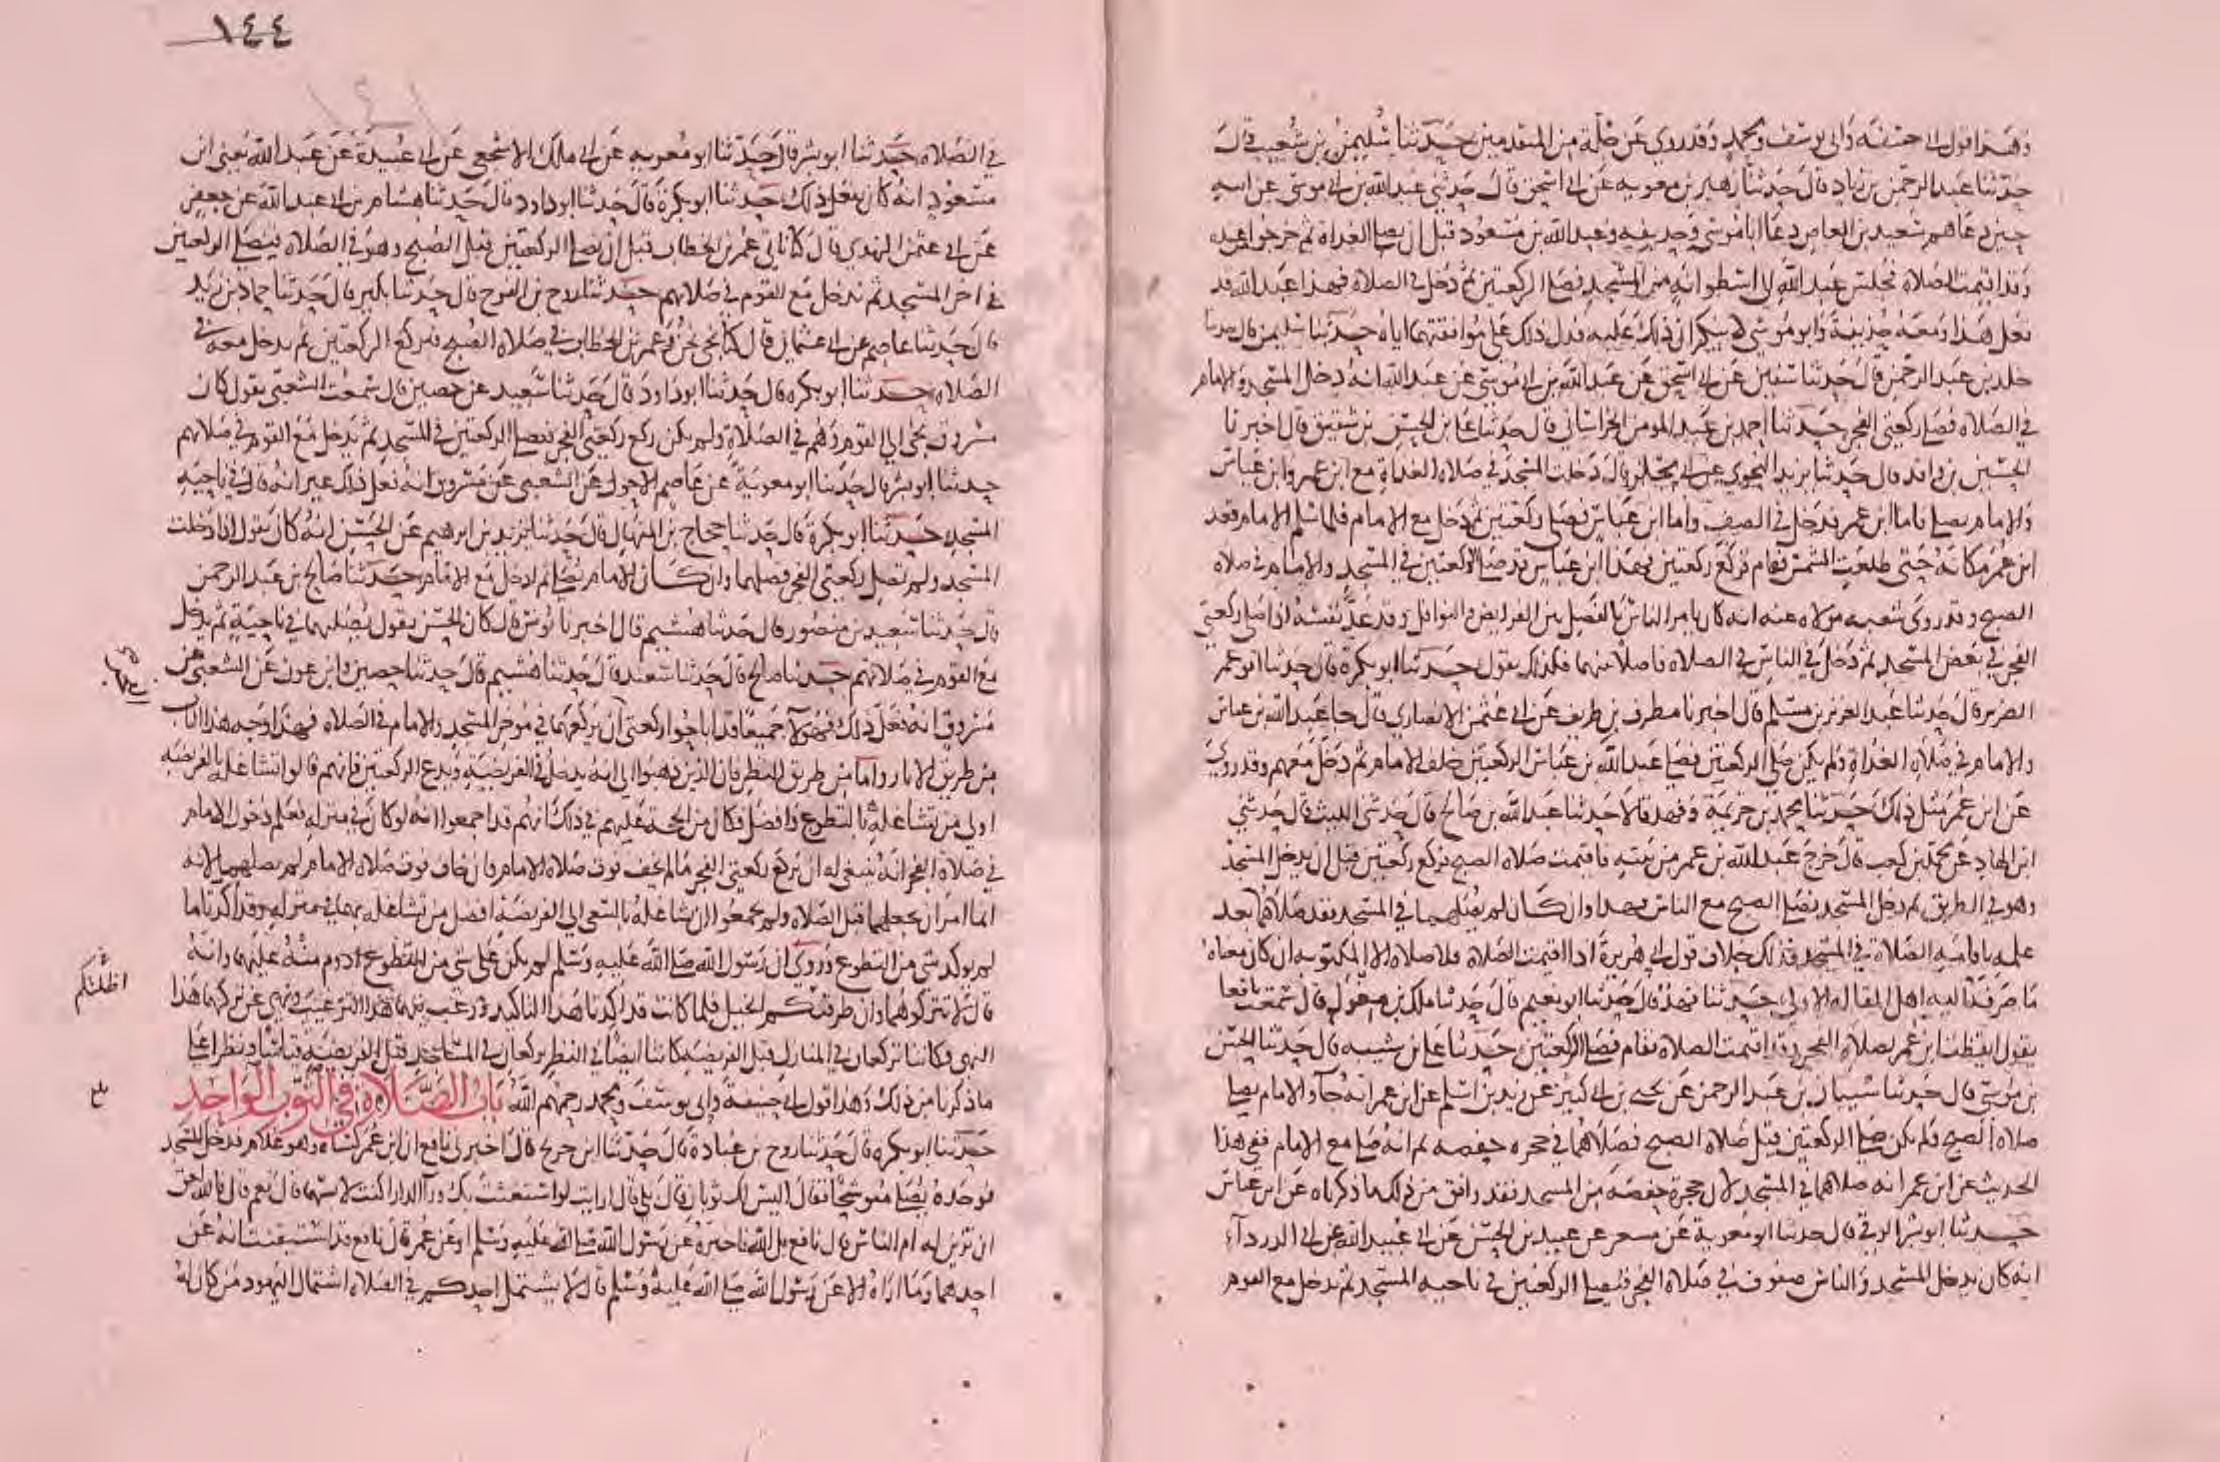 وهذا قول ابي حنيفه وابي يوسف ومحمد وقد روي عن جلة من المتقدمين حدثنا سليمن بن شعيب قال
حدثنا عبد الرحمن بن زياد قال حدثنا زهير بن معويه عن ابي اسحق قال حدثني عبد الله بن ابي موسى عن ابيه
حين دعاهم سعيد بن العاص دعا ابا موسى وحذيفه وعبد الله بن مسعود قبل ان يصلي الغداة ثم خرجوا من عنده
وقد اقيمت الصلاة فجلس عبد الله الى اسطوانة من المسجد فصلى الركعتين ثم دخل في الصلاة فهذا عبد الله قد
فعل هذا ومعه حذيفة وابو موسى لا ينكران ذلك عليه فدل ذلك على موافقتهما اياه حدثنا سليمن قال حدثنا
خلد بن عبد الرحمن قال حدثنا سفين عن ابي اسحق عن عبد الله بن ابي موسى عن عبد الله انه دخل المسجد والامام
في الصلاة فصلى ركعتي الفجر حدثنا احمد بن عبد المومن الخراساني قال حدثنا علي بن الحسن بن شقيق قال اخبرنا
الحسين بن واقد قال حدثنا يزيد النحوي عن ابي مجلز قال دخلت المسجد في صلاة الغداة مع ابن عمر وابن عباس
والامام يصلي فاما ابن عمر فدخل في الصف واما ابن عباس فصلى ركعتين ثم دخل مع الامام فلما سلم الامام قعد
ابن عمر مكانه حتى طلعت الشمس فقام فركع ركعتين فهذا ابن عباس قد صلى الركعتين في المسجد والامام في صلاة
الصبح وقد روى شعبه مولاه عنه انه كان يامر الناس بالفصل بين الفرايض والنوافل وقد عد نفسه اذا صلى ركعتي
الفجر في بعض المسجد ثم دخل في الناس في الصلاة فاصلا بينهما فكذلك يقول حدثنا ابو بكرة قال حدثنا ابو عمر
الضرير قال حدثنا عبد العزيز بن مسلم قال اخبرنا مطرف بن طريف عن ابي عثمن الانصاري قال جا عبد الله بن عباس
والامام في صلاة الغداة ولم يكن صلى الركعتين فصلى عبد الله بن عباس الركعتين خلف الامام ثم دخل معهم وقد روي
عن ابن عمر مثل ذلك حدثنا محمد بن خزيمة وفهد قالا حدثنا عبد الله بن صالح قال حدثني الليث قال حدثني
ابن الهاد عن محمد بن كعب قال خرج عبد الله بن عمر من بيته فاقيمت صلاة الصبح فركع ركعتين قبل ان يدخل المسجد
وهو في الطريق ثم دخل المسجد فصلى الصبح مع الناس فهذا وان كان لم يصلهما في المسجد فقد صلاهما بعد
علمه باقامة الصلاة في المسجد فذلك خلاف قول ابي هريرة اذا اقيمت الصلاة فلا صلاة الا المكتوبه ان كان معناه
ما صرفه اليه اهل المقاله الاولى حدثنا فهد قال حدثنا ابو نعيم قال حدثنا ملك بن مغول قال سمعت نافعا
يقول ايقظت ابن عمر لصلاة الفجر وقد اقيمت الصلاة فقام فصلى الركعتين حدثنا علي بن شيبه قال حدثنا الحسن
بن موسى قال حدثنا شيبان بن عبد الرحمن عن يحيى بن ابي كثير عن زيد بن اسلم عن ابن عمر انه جاء والامام يصلي
صلاة الصبح ولم يكن صلى الركعتين قبل صلاة الصبح فصلاهما في حجره حفصه ثم انه صلى مع الامام ففي هذا
الحديث عن ابن عمر انه صلاهما في المسجد لان حجرة حفصه من المسجد فقد وافق من ذلك ما ذكرناه عن ابن عباس
حدثنا ابو بشر الرقي قال حدثنا ابو معوية عن مسعر عن عبيد بن الحسن عن ابي عبيد الله عن ابي الدرداء
انه كان يدخل المسجد والناس صفوف في صلاة الفجر فيصلي الركعتين في ناحيه المسجد ثم يدخل مع القوم
١٤٤
في الصلاه حدثنا ابو بشر قال حدثنا ابو معويه عن ابي ملك الاشجعي عن ابي عبيدة عن عبد الله يعني ابن
مسعود انه كان يفعل ذلك حدثنا ابو بكرة قال حدثنا ابو داود قال حدثنا هشام بن ابي عبد الله عن جعفر
عن ابي عثمن النهدي قال كنا ناتي عمر بن الخطاب قبل ان نصلي الركعتين قبل الصبح وهو في الصلاة فنصلي الركعتين
في اخر المسجد ثم ندخل مع القوم في صلاتهم حدثنا روح بن الفرج قال حدثنا بكير قال حدثنا حماد بن زيد
قال حدثنا عاصم عن ابي عثمان قال كنا نجي نحن وعمر بن الخطاب في صلاة الصبح فنركع الركعتين ثم ندخل معه في
الصلاه حدثنا ابو بكره قال حدثنا ابو داود قال حدثنا سعيد عن حصين قال سمعت الشعبي يقول كان
مسروق يجي الى القوم وهم في الصلاة ولم يكن ركع ركعتي الفجر فيصلي الركعتين في المسجد ثم يدخل مع القوم في صلاتهم
حدثنا ابو بشر قال حدثنا ابو معوية عن عاصم الاحول عن الشعبي عن مسروق انه فعل ذلك غير انه قال في ناحيه
المسجد حدثنا ابو بكرة قال حدثنا حجاج بن المنهال قال حدثنا يزيد بن ابرهيم عن الحسن انه كان يقول اذا دخلت
المسجد ولم تصل ركعتي الفجر فصلهما وان كان الامام يصلي ثم ادخل مع الامام حدثنا صالح بن عبد الرحمن
قال حدثنا سعيد بن منصور قال حدثنا هشيم قال اخبرنا يونس قال كان الحسن يقول يصليهما في ناحية ثم يدخل
مع القوم في صلاتهم حدثنا صالح قال حدثنا سعيد قال حدثنا هشيم قال حدثنا حصين وابن عون عن الشعبي عن
مسروق انه فعل ذلك فهولا جميعا قد اباحوا ركعتي ان يركعهما في موخر المسجد والامام في الصلاة فهذا وجه هذا الباب
من طريق الاثار واما من طريق النظر فان الذين ذهبوا الى انه يدخل في الفريضة ويدع الركعتين فانهم قالوا تشاغله بالفريضه
اولى من تشاغله بالتطوع وافضل فكان من الحجة عليهم في ذلك انهم قد اجمعوا انه لو كان في منزله فعلم دخول الامام
في صلاة الفجر انه ينبغي له ان يركع ركعتي الفجر ما لم يخف فوت صلاة الامام فان خاف فوت صلاة الامام لم يصلهما لانه
انما امر ان يجعلهما قبل الصلاه ولم يجمعوا ان تشاغله بالسعي الى الفريضة افضل من تشاغله بهما في منزله وقد اكدتا ما
لم يوكد شي من التطوع وروي ان رسول الله صلى الله عليه وسلم لم يكن على شي من التطوع ادوم منه عليهما وانه
قال لا تتركوهما وان طرقتكم الخيل فلما كانت قد اكدتا هذا التاكيد ورغب فيهما هذا الترغيب ونهي عن تركهما هذا
النهي وكانتا تركعان في المنازل قبل الفريضه كانتا ايضا في النظر تركعان في المساجد قبل الفريضة قياسا ونظرا على
ما ذكرنا من ذلك وهذا قول ابي حنيفة وابي يوسف ومحمد رحمهم الله باب الصلاة في الثوب الواحد
حدثنا ابو بكره قال حدثنا روح بن عبادة قال حدثنا ابن جريج قال اخبرني نافع ان ابن عمر كساه وهو غلام فدخل المسجد
فوجده يصلي متوشحا فقال اليس لك ثوبان قال بلى قال ارايت لو استعنت بك وراء الدار اكنت لابسهما قال نعم قال فالله احق
ان تزين له ام الناس قال نافع بل الله فاخبره عن رسول الله صلى الله عليه وسلم او عن عمر قال نافع قد استيقنت انه عن
احدهما وما اراه الا عن رسول الله صلى الله عليه وسلم قال لا يشتمل احدكم في الصلاة اشتمال اليهود من كان له